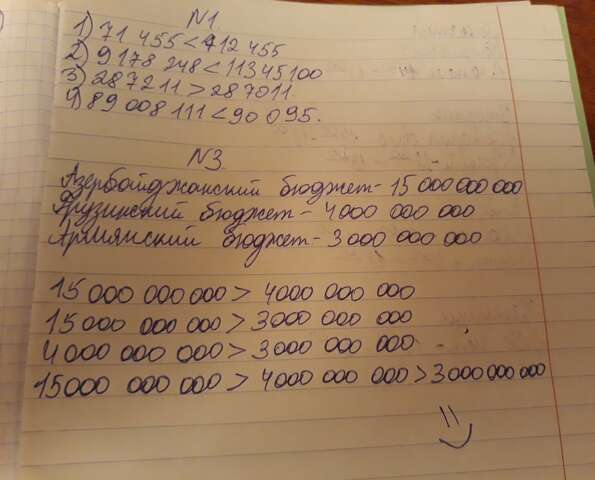 N1.
1) 71 455 < 712 455
2) 9178 248 < 11345100
3) 287211 > 287011.
4) 89 008 111 < 90 095.
N3.
Азербайджанский бюджет- 15 000 000 000
Грузинский бюджет - 4000 000 000
Армянский бюджет - 3000 000 000
15 000 000 000 > 4000 000 000
15000 000 000 > 3000 000 000
4000 000 000 > 3000 000 000
15000 000 000 > 4000 000 000 > 3000 000 000